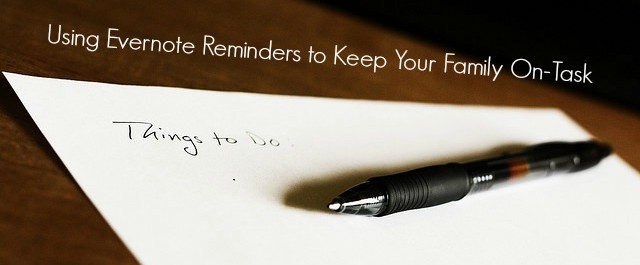 Using Evernote Reminders to Keep Your Family On-Task
Things to Do